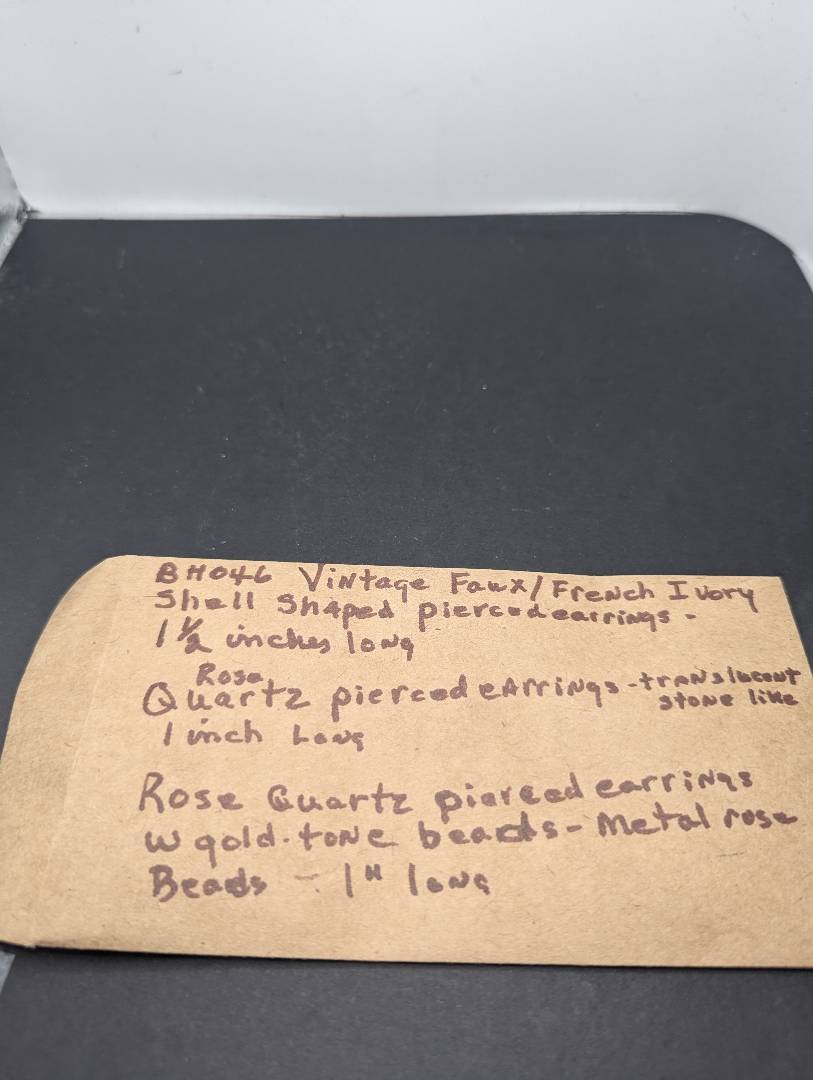 BH046 Vintage Faux/French Ivory
Shell Shaped pierced earrings -
1 1/2 inches long
Rose
Quartz pierced earrings - translucent
stone like
1 inch Long
Rose Quartz pierced earrings
w gold-tone beads - Metal rose
Beads - 1" long